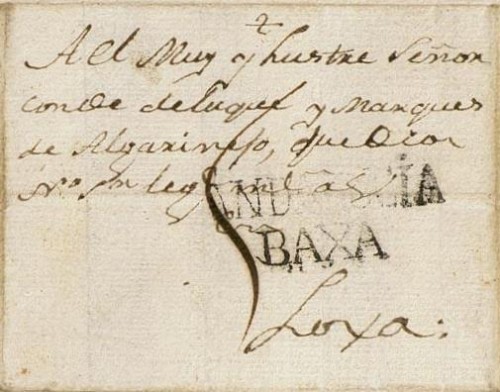 2
Al Muy yllustre Señor
conde de luque y Marques
de Algarinejo, que Dios
gue
ANDALUCÍA
BAXA
Loxa.